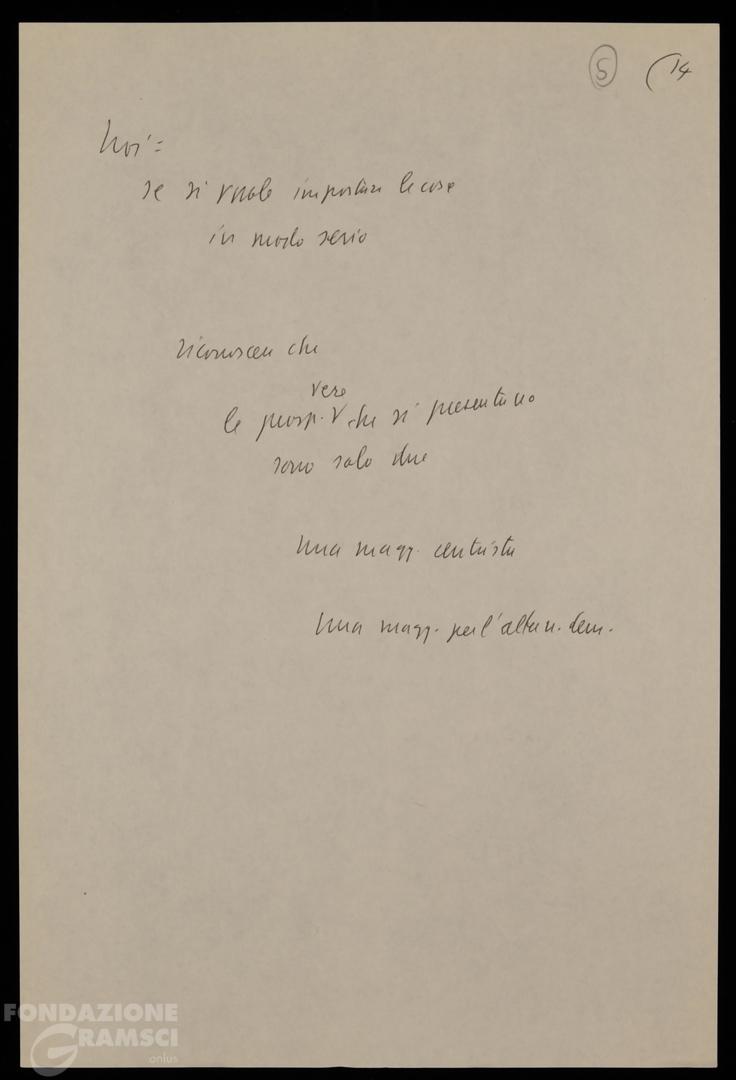 5 (14
Noi =
se si vuole impostare le cose
in modo serio
riconoscere che
vere
le prosp. V che si presentano
sono solo due
Una magg. centrista
Una magg. per l'altern. dem.
FONDAZIONE
GRAMSCI
onlus